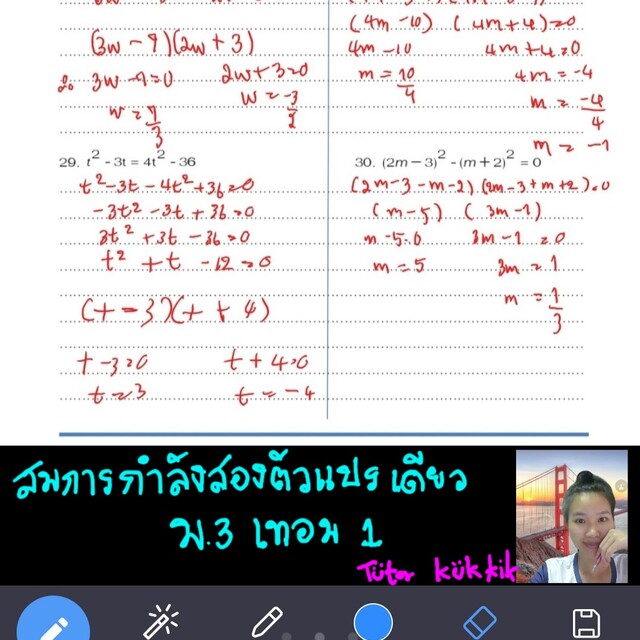 (3w - 9)(2w + 3)
3w - 9 = 0 2w + 3 = 0
w = 9/3 w = -3/2
29. t² - 3t = 4t² - 36
t² - 3t - 4t² + 36 = 0
-3t² - 3t + 36 = 0
3t² + 3t - 36 = 0
t² + t - 12 = 0
(t - 3)(t + 4)
t - 3 = 0 t + 4 = 0
t = 3 t = -4
(4m - 10) (4m + 4) = 0
4m - 10 4m + 4 = 0
m = 10/4 4m = -4
m = -4/4
m = -1
30. (2m - 3)² - (m + 2)² = 0
(2m - 3 - m - 2) (2m - 3 + m + 2) = 0
(m - 5) (3m - 1)
m - 5 = 0 3m - 1 = 0
m = 5 3m = 1
m = 1/3
สมการกำลังสองตัวแปรเดียว
ม.3 เทอม 1
Tütor kükkik